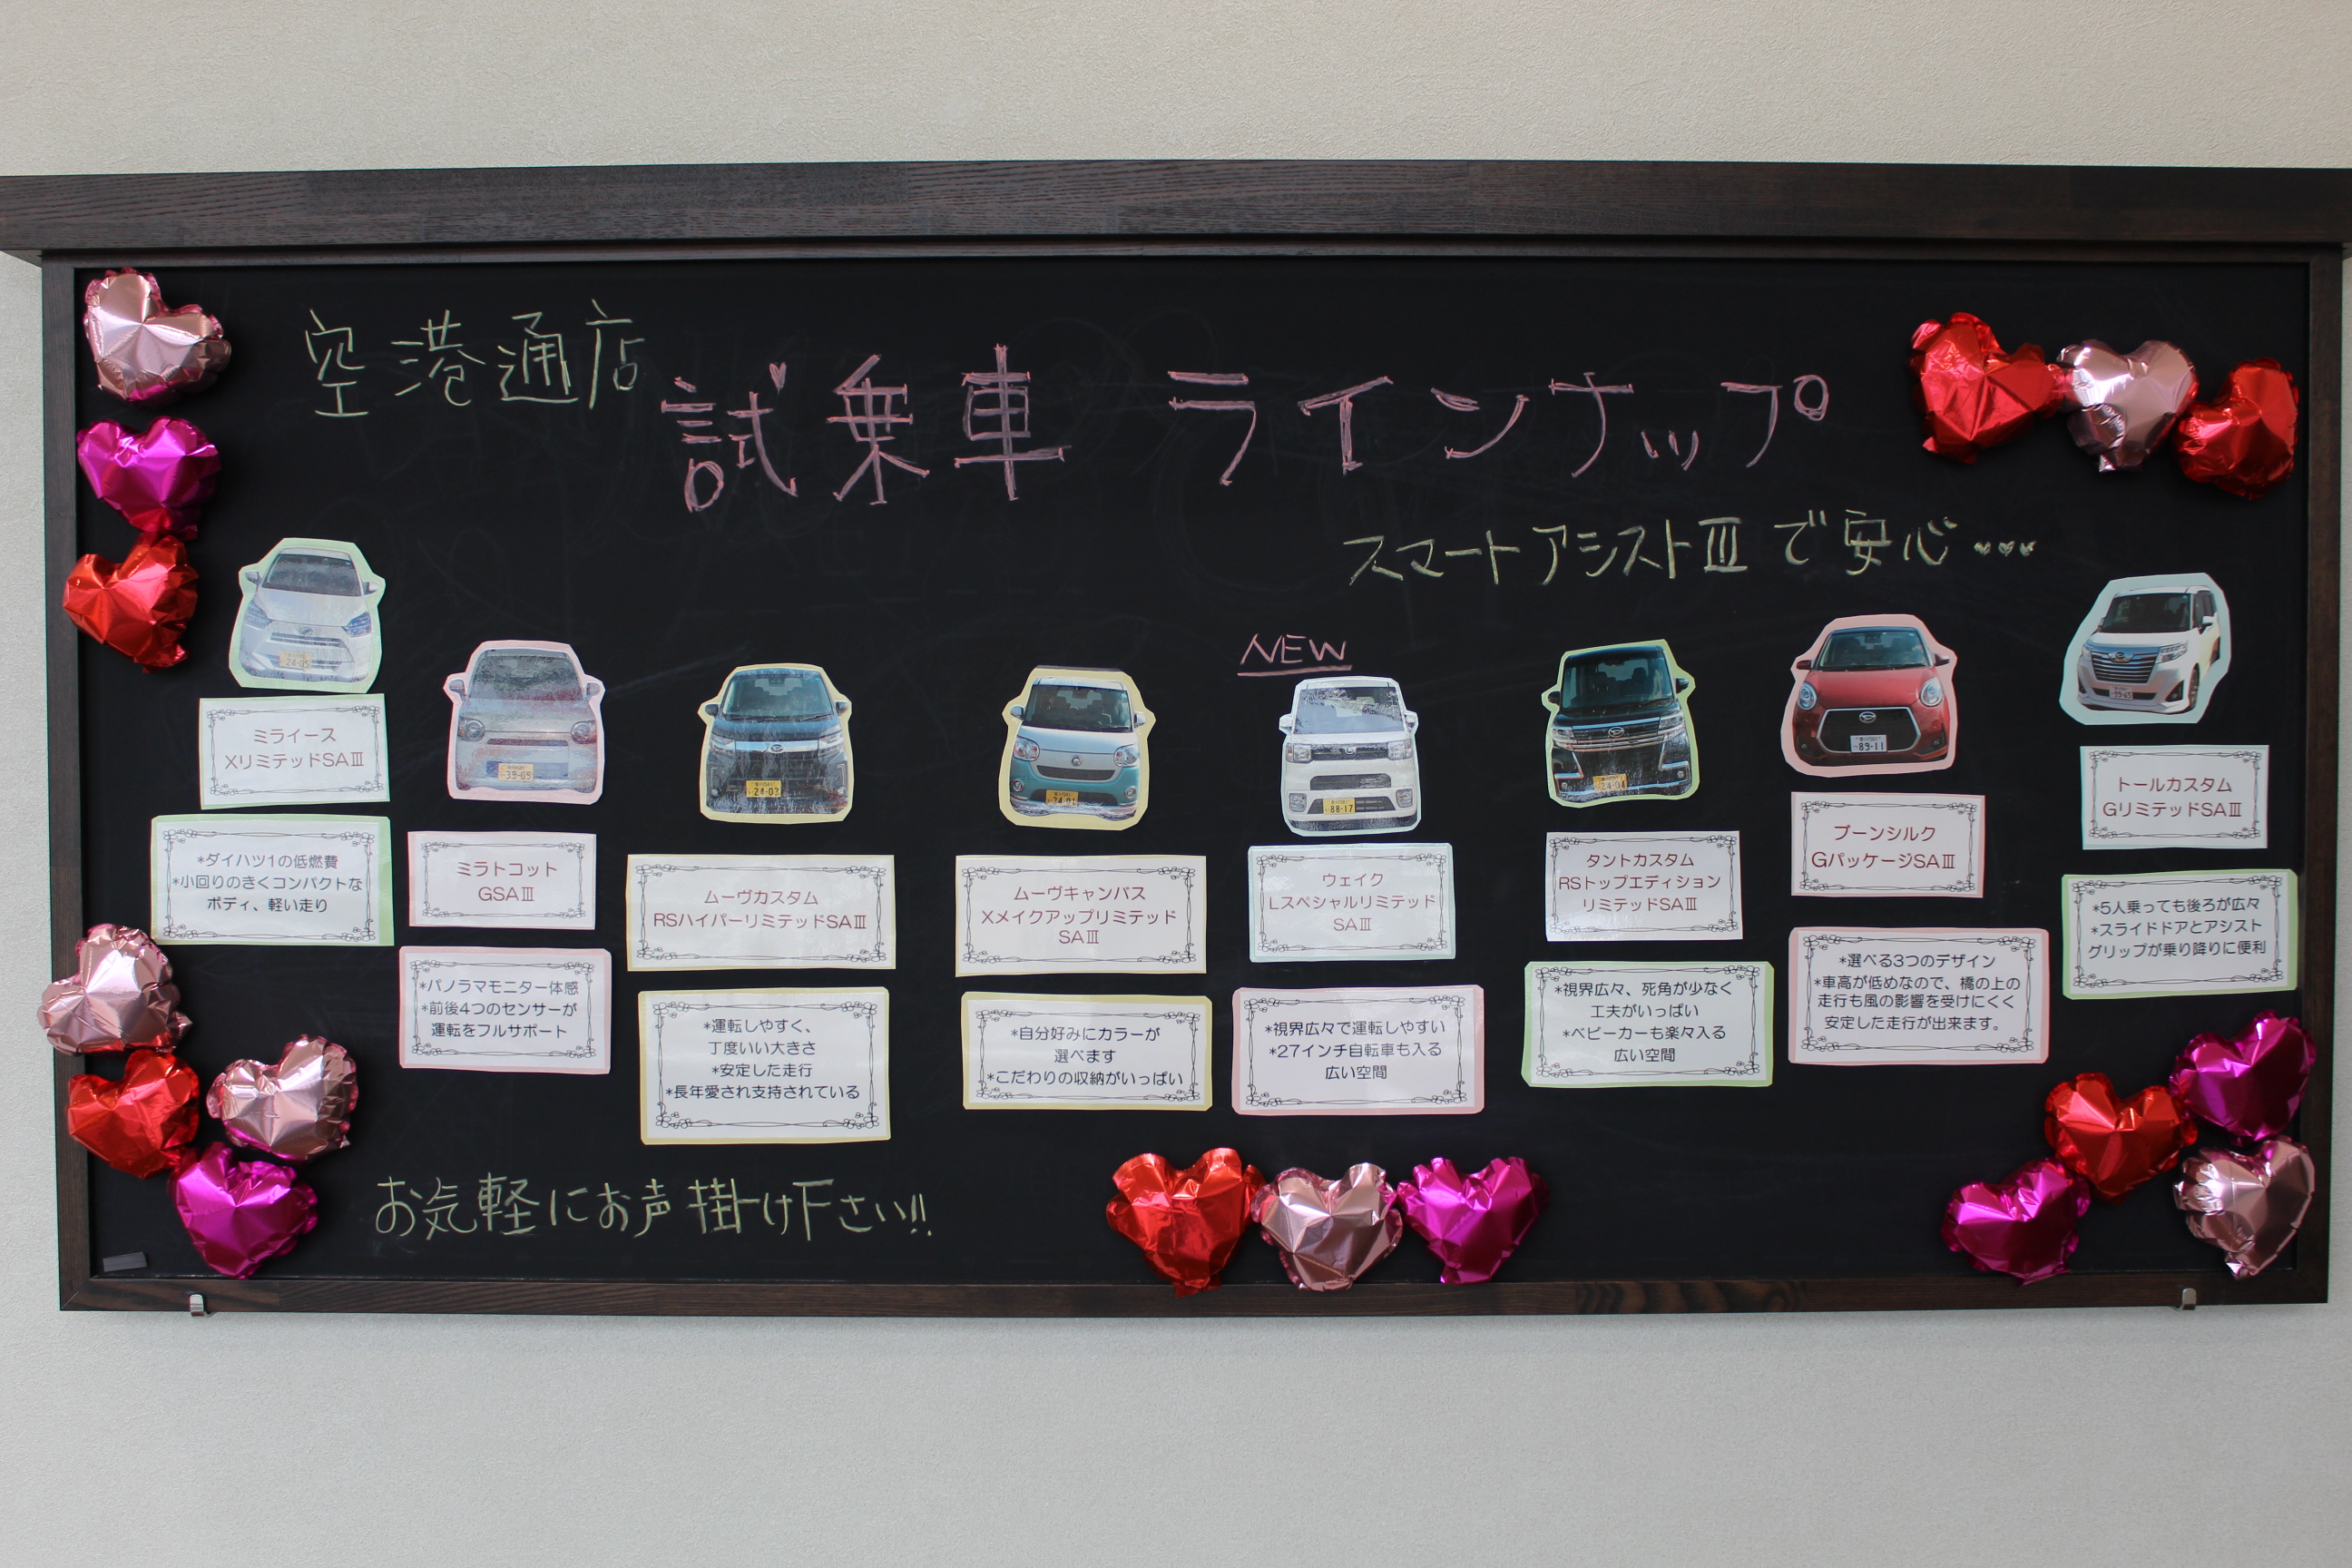 空港通店
試乗車 ラインナップ
スマートアシストⅢで安心…
24-05
ミライース
XリミテッドSAⅢ
*ダイハツ1の低燃費
*小回りのきくコンパクトな
ボディ、軽い走り
39-05
ミラトコット
GSAⅢ
*パノラマモニター体感
*前後4つのセンサーが
運転をフルサポート
24-03
ムーヴカスタム
RSハイパーリミテッドSAⅢ
*運転しやすく、
丁度いい大きさ
*安定した走行
*長年愛され支持されている
24-01
ムーヴキャンバス
Xメイクアップリミテッド
SAⅢ
*自分好みにカラーが
選べます
*こだわりの収納がいっぱい
NEW
88-17
ウェイク
Lスペシャルリミテッド
SAⅢ
*視界広々で運転しやすい
*27インチ自転車も入る
広い空間
24-04
タントカスタム
RSトップエディション
リミテッドSAⅢ
*視界広々、死角が少なく
工夫がいっぱい
*ベビーカーも楽々入る
広い空間
89-11
ブーンシルク
GパッケージSAⅢ
*選べる3つのデザイン
*車高が低めなので、橋の上の
走行も風の影響を受けにくく
安定した走行が出来ます。
トールカスタム
GリミテッドSAⅢ
*5人乗っても後ろが広々
*スライドドアとアシスト
グリップが乗り降りに便利
お気軽にお声掛け下さい!!